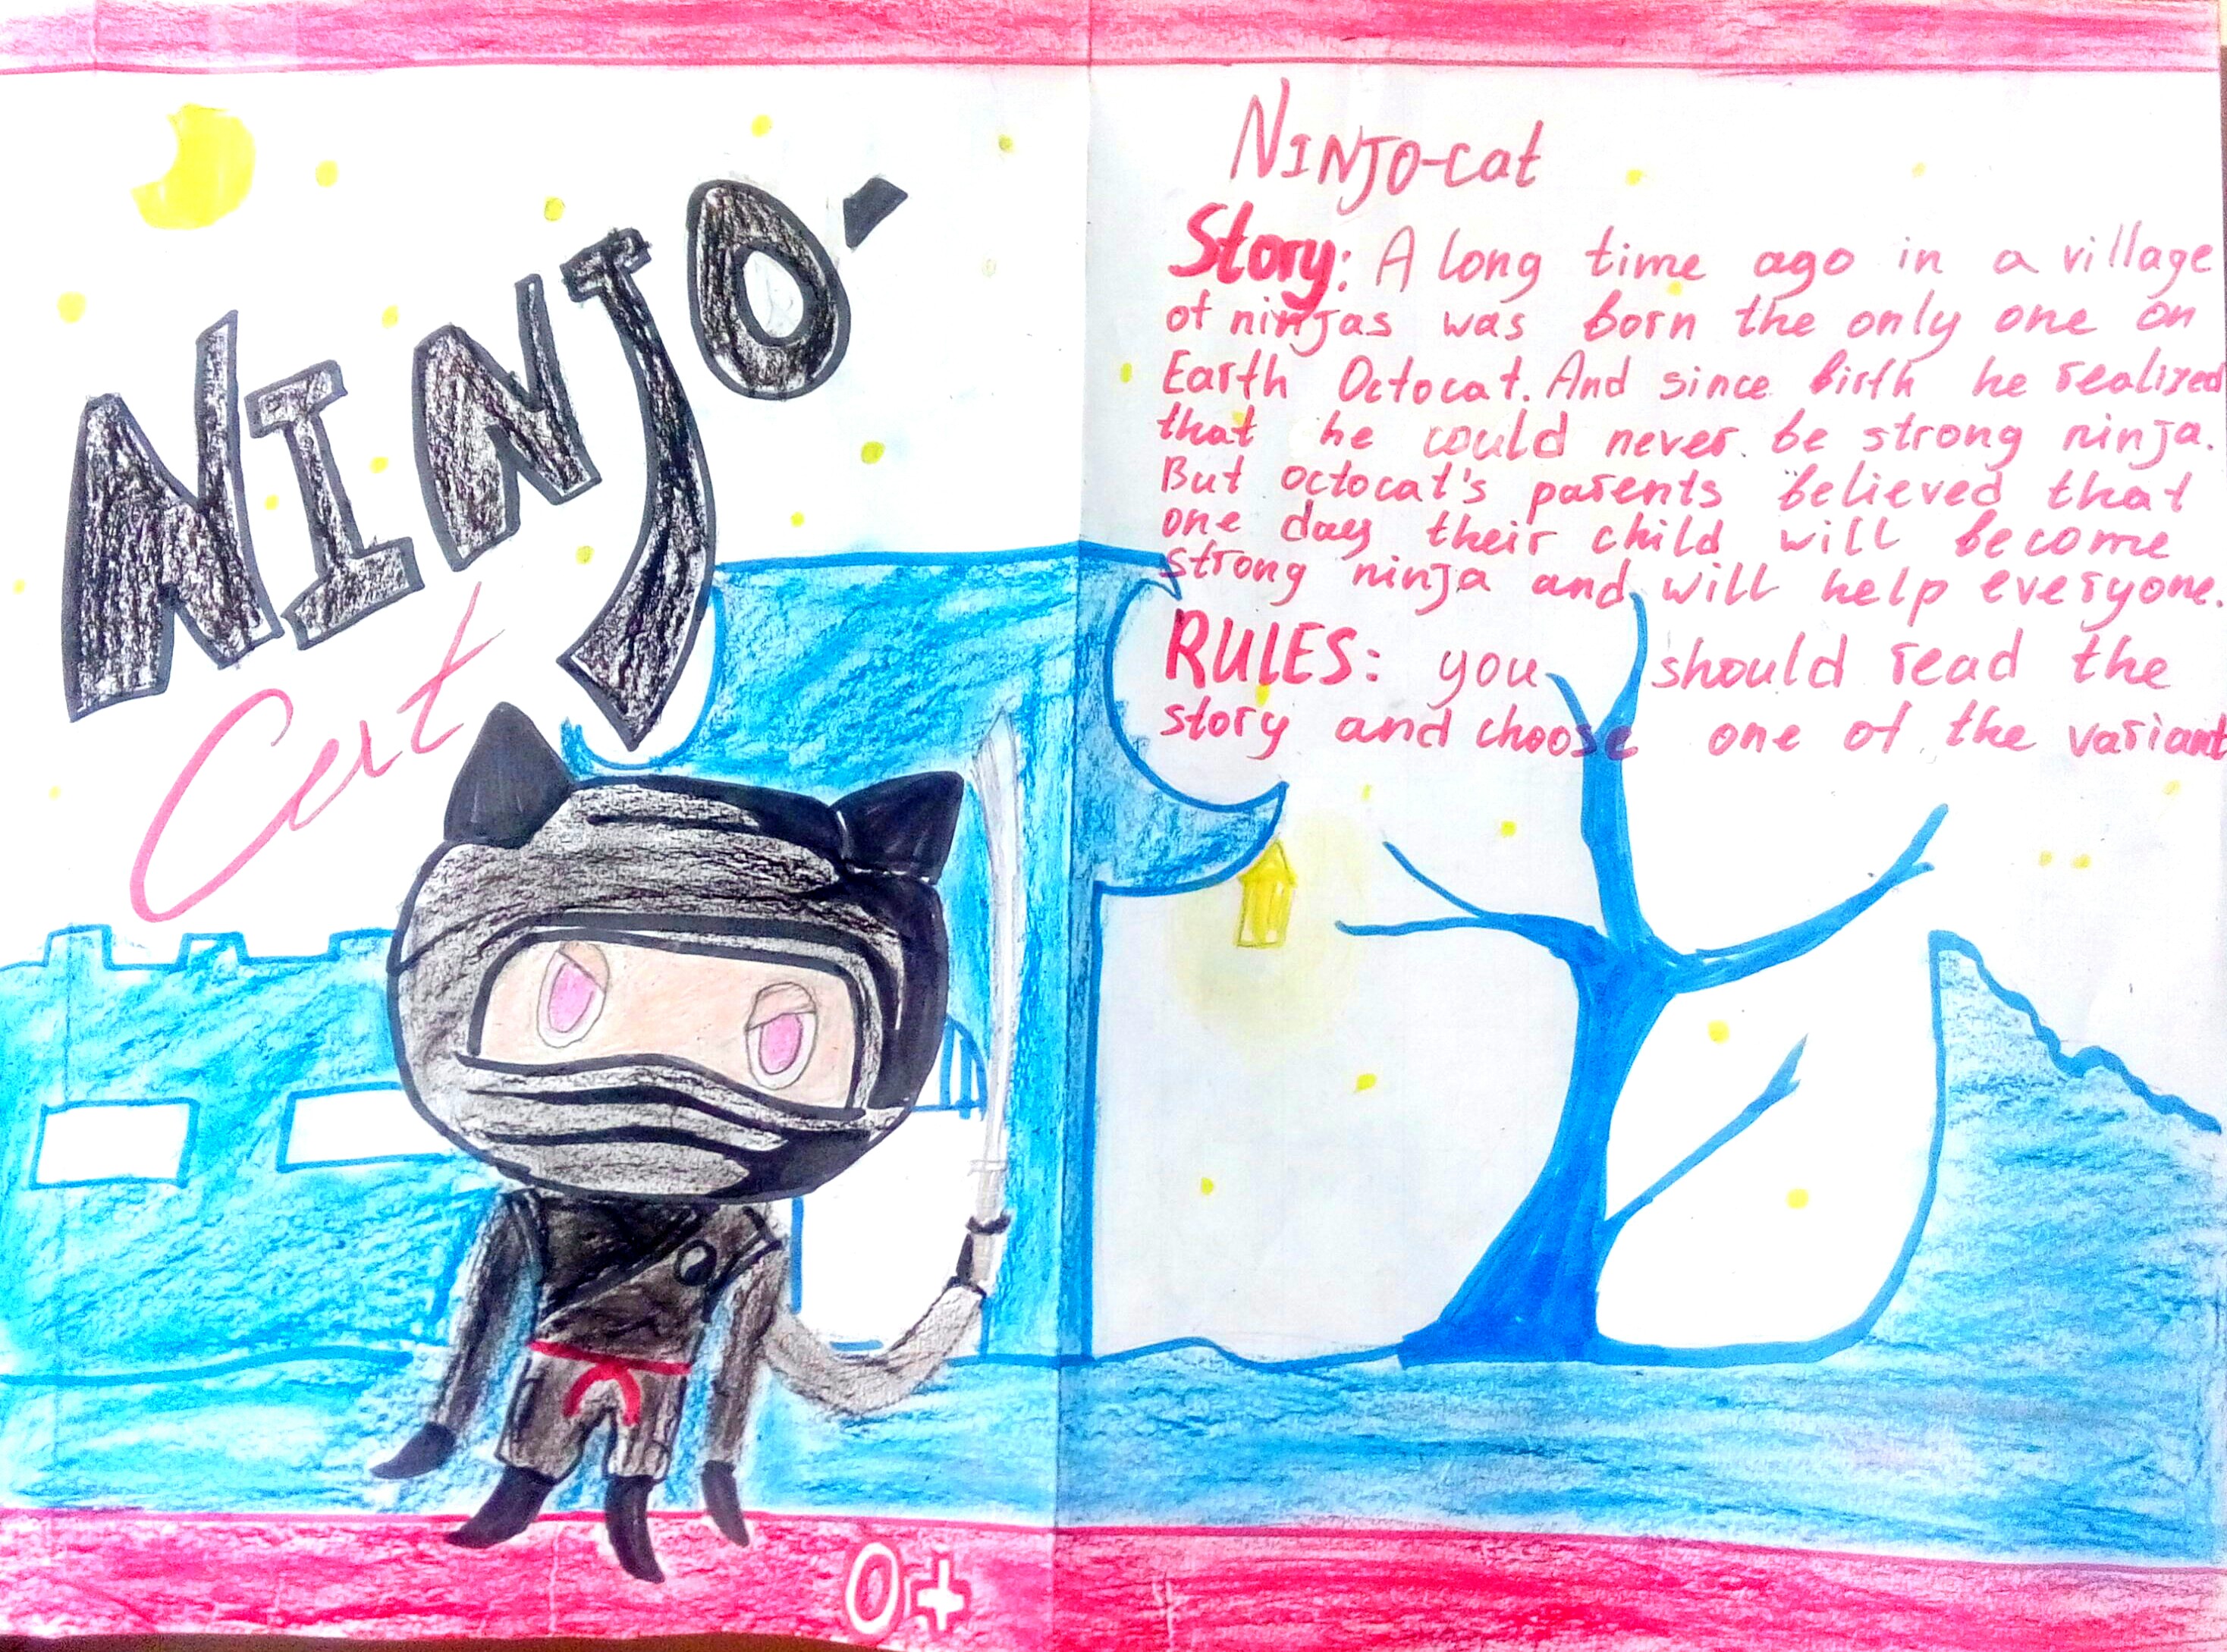 NINJO-
Cat
0+
NINJO-cat
Story: A long time ago in a village
of ninjas was born the only one on
Earth Octocat. And since birth he realized
that he could never be strong ninja.
But octocat's parents believed that
one day their child will become
strong ninja and will help everyone.
RULES: you should read the
story and choose one of the variant